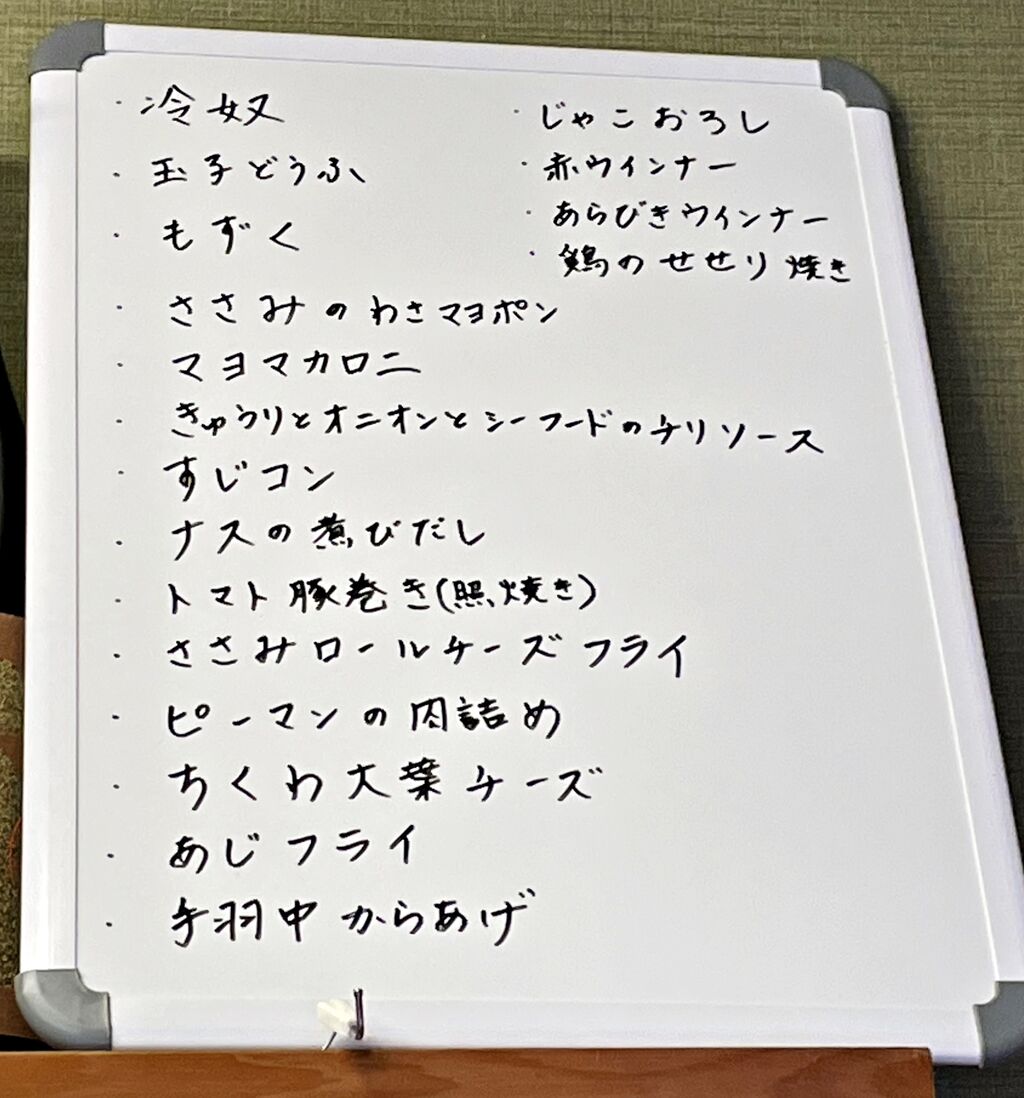 ・冷奴
・玉子どうふ
・もずく
・ささみのわさマヨポン
・マヨマカロニ
・きゅうりとオニオンとシーフードのチリソース
・すじコン
・ナスの煮びだし
・トマト豚巻き(照焼き)
・ささみロールチーズフライ
・ピーマンの肉詰め
・ちくわ大葉チーズ
・あじフライ
・手羽中からあげ
・じゃこおろし
・赤ウインナー
・あらびきウインナー
・鶏のせせり焼き